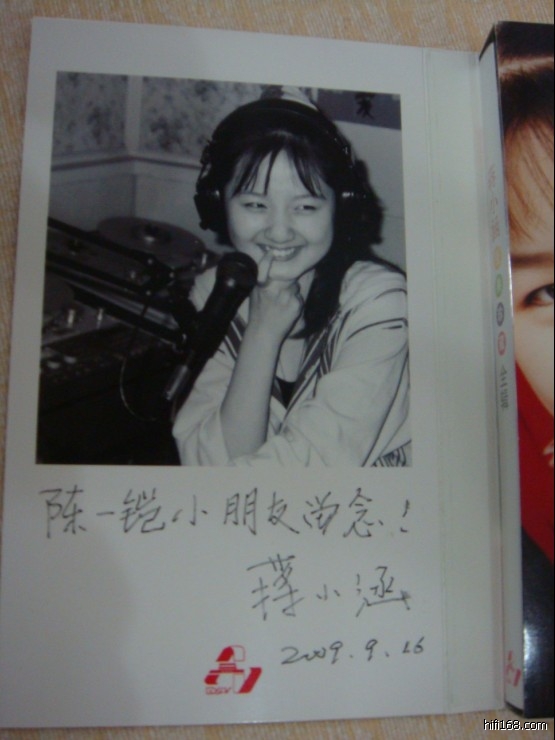 陈一铠小朋友留念!
蒋小涵
2009.9.16
hifi168.com